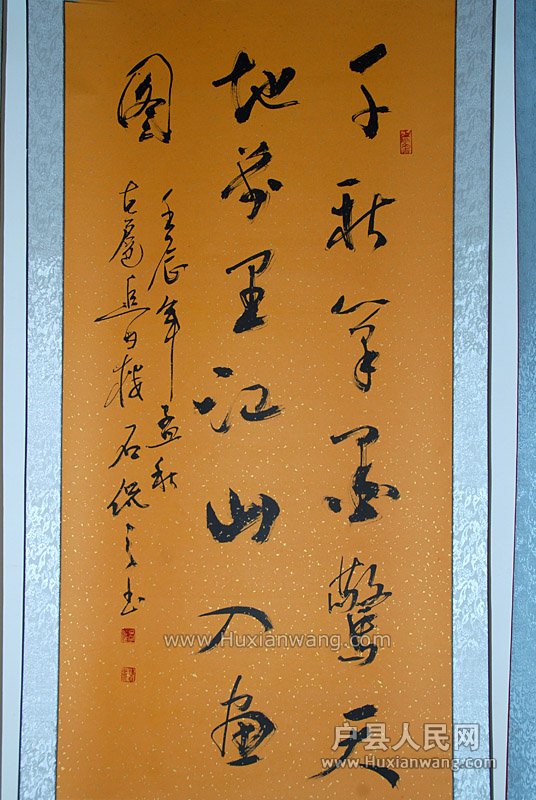 千秋笔墨惊天
地万里江山入画
图
壬辰年孟秋
古扈 石侃
www.Huxianwang.com
户县人民网
www.Huxianwang.com